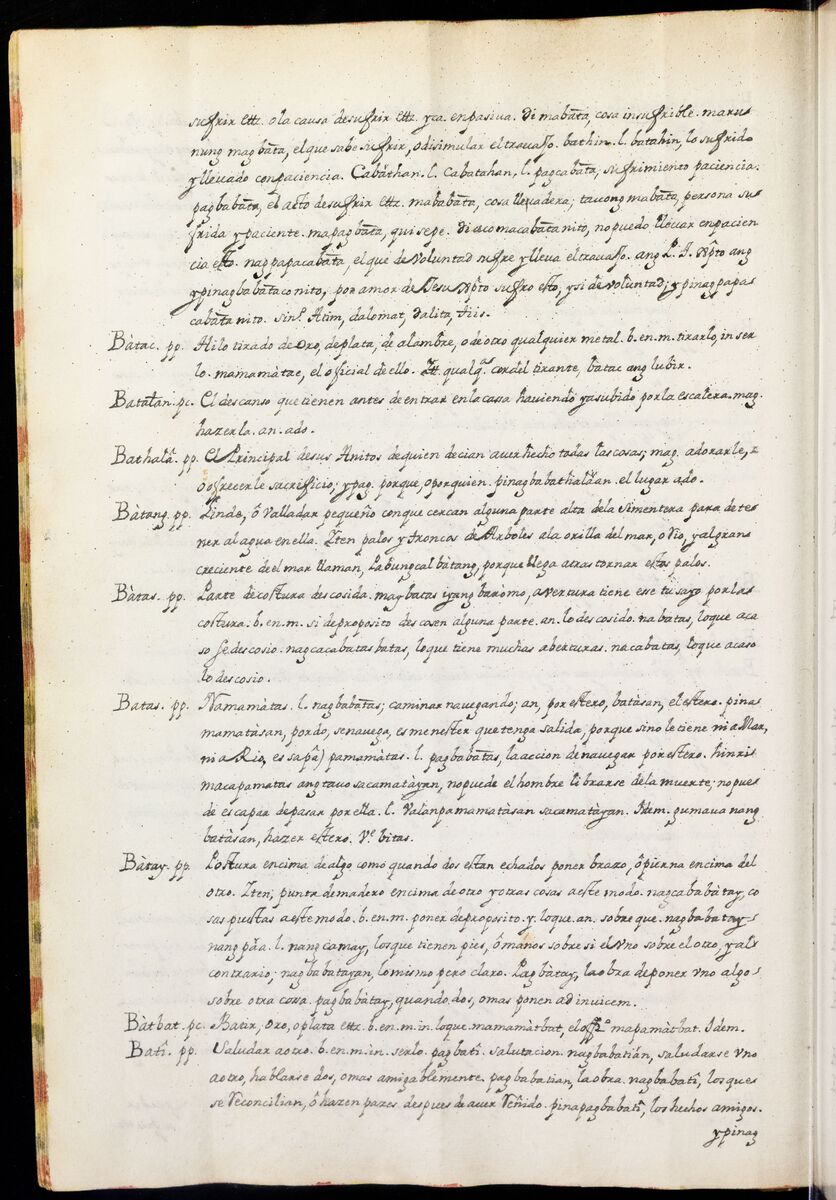 sufrir ettz. o la causa de sufrir ettz. yca. en pasiva. Di mabàta, cosa insufrible. maru=
nung magbàta, el que sabe sufrir, o disimular el travajo. bathin. l. batahin, lo sufrido
y llevado con paciencia. Cabàthan. l. Cabatahan, l. pagcabàta; sufrimiento paciencia.
pagbabàta, el acto de sufrir ettz. mababàta, cosa llevadera; tavong mabàta, persona su=
frida y paciente. mapagbàta, qui sepe. di aco macabàta nito, no puedo llevar en pacien
cia esto. nagpapacabàta, el que de voluntad sufre y lleva el travajo. ang P. J. Xpto ang
ypinagbabàta co nito, por amor de Jesu Xpto sufro esto, y si de voluntad; ypinagpapa=
cabàta nito. sin.s Atim, dalomat, dalita, tiis.
Bàtac. pp. Hilo tirado de oro, de plata, de alambre, o de otro qualquier metal. b. en. m. tirarlo, in ser
lo. mamamàtac, el oficial de ello. Itt qualq.a cordel tirante, bàtac ang lubir.
Batalan. pc. El descanso que tienen antes de entrar en la cassa haviendo ya subido por la escalera. mag.
hazerla. an. ado.
Bathalâ. pp. El Principal de sus Anitos de quien decian aver hecho todas las cosas; mag. adorarle,
ô ofrecerle sacrificio; y pag. porque, o por quien. pinagbabathalàan. el lugar ado.
Bàtang. pp. Linde, ô valladar pequeño con que cercan alguna parte alta de la simentera para dete=
ner al agua en ella. Iten palos y troncos de Arboles a la orilla del mar, o Rio, y al gran
creciente de el mar llaman, Labungcal bàtang, porque llega a trastornar estos palos.
Bàtas. pp. Parte de costura descosida. may batas iyang baromo, avertura tiene ese tu sayo por la
costura. b. en. m. si de proposito descosen alguna parte. an. lo descosido. na batas, lo que aca
so se descosio. nagcacabatas batas, lo que tiene muchas aberturas. nacabatas, lo que acaso
lo descosio.
Batas. pp. Namamàtas. l. nagbabàtas; caminar navegando; an, por estero, batàsan, el estero. pina=
mamatàsan, por do, se navega, es menester que tenga salida, porque sino le tiene ni a Mar,
ni a Rio, es sapâ) pamamàtas. l. pagbabàtas, la accion de navegar por estero. hindi
macapamatas ang tavo sa camatàyan, no puede el hombre librarse de la muerte; no pue=
de escapar de pasar por ella. l. Valànpamamatàsan sa camatàyan. Idem. gumava nang
batàsan, hazer estero. V.e bitas.
Bàtay. pp. Postura encima de algo como quando dos estan echados poner brazo, ô pierna encima del
otro. Iten; punta de madero encima de otro y otras cosas a este modo. nagcababàtay, co
sas puestas a este modo. b. en. m. poner de proposito. y. lo que. an. sobre que. nagbabatay=
nang pàa. l. nang camay, los que tienen pies, ô manos sobre si el vno sobre el otro, y al
contrario; nagbabatayan, lo mismo pero claro. Pagbàtay, la obra de poner vno algo=
sobre otra cossa. pagbabàtay, quando, dos, o mas ponen ad inuicem.
Bàtbat. pc. Batir, oro, o plata ettz. b. en. m. in. lo que. mamamàtbat, el off.o mapamàtbat. Idem.
Batî. pp. Saludar a otro. b. en. m. in. serlo. pagbatî. salutacion. nagbabatian, saludarse vno
a otro, hablarse dos, o mas amigablemente. pagbabatian, la obra. nagbabatî, los que=
se reconcilian, ô hazen pazes despues de aver reñido. pinapagbabatî, los hechos amigos.
ypinag